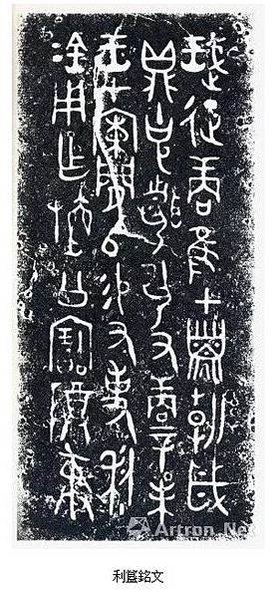 珷征商隹甲子朝歲
鼎克昏夙又商辛未
王才闌𠂤易又事利
金用乍旜公寶尊彝
Artron.Net
利簋銘文